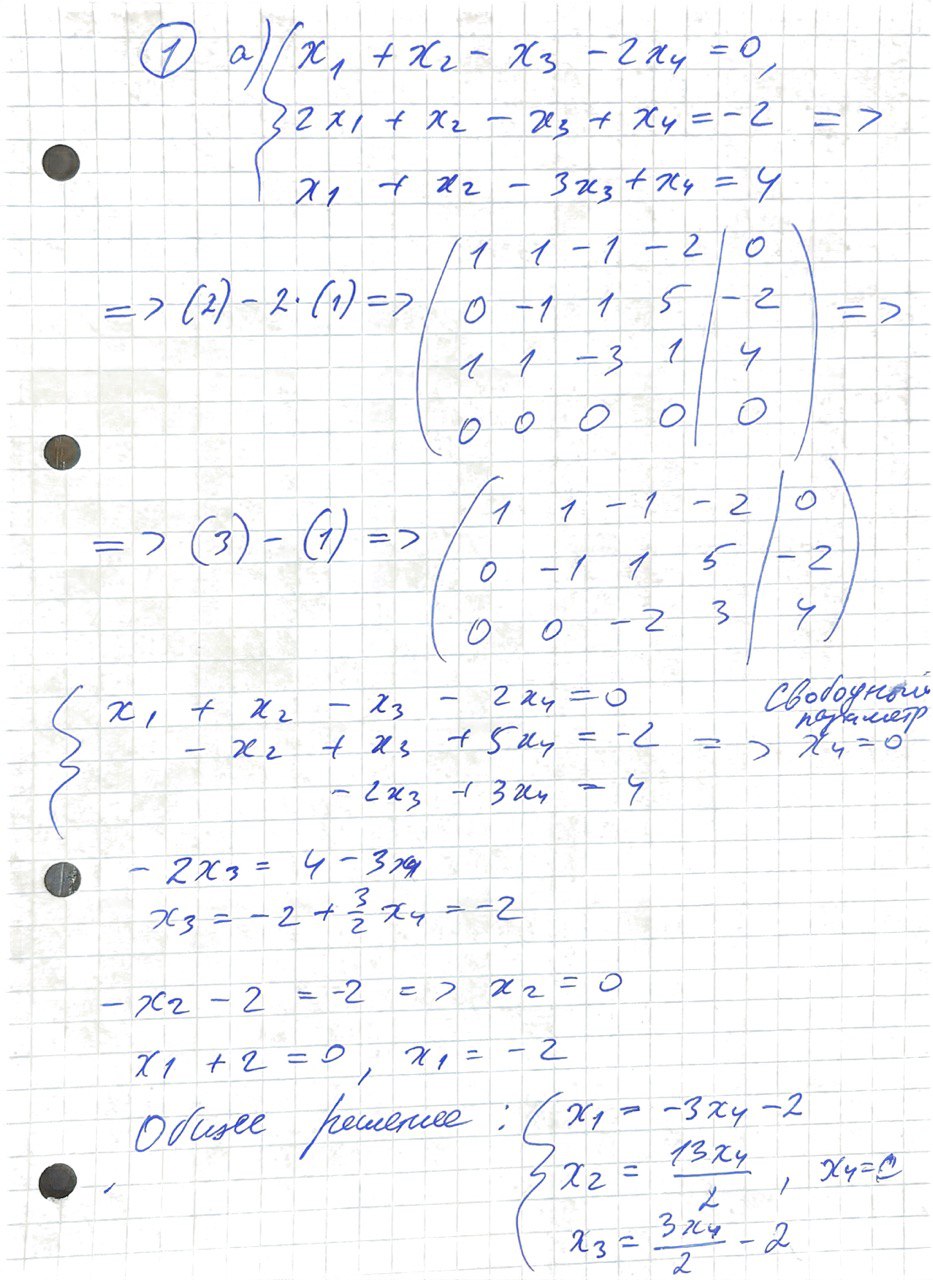 1 а) { x₁ + x₂ - x₃ - 2x₄ = 0,
2x₁ + x₂ - x₃ + x₄ = -2 =>
x₁ + x₂ - 3x₃ + x₄ = 4
=> (2) - 2·(1) => ( 1 1 -1 -2 | 0
0 -1 1 5 | -2
1 1 -3 1 | 4
0 0 0 0 | 0 ) =>
=> (3) - (1) => ( 1 1 -1 -2 | 0
0 -1 1 5 | -2
0 0 -2 3 | 4 )
{ x₁ + x₂ - x₃ - 2x₄ = 0
- x₂ + x₃ + 5x₄ = -2 =>
- 2x₃ + 3x₄ = 4
Свободный
параметр
x₄ = 0
- 2x₃ = 4 - 3x₄
x₃ = -2 + 3/2 x₄ = -2
-x₂ - 2 = -2 => x₂ = 0
x₁ + 2 = 0, x₁ = -2
Общее решение : { x₁ = -3x₄ - 2
x₂ = 13x₄/2 , x₄ = 0
x₃ = 3x₄/2 - 2